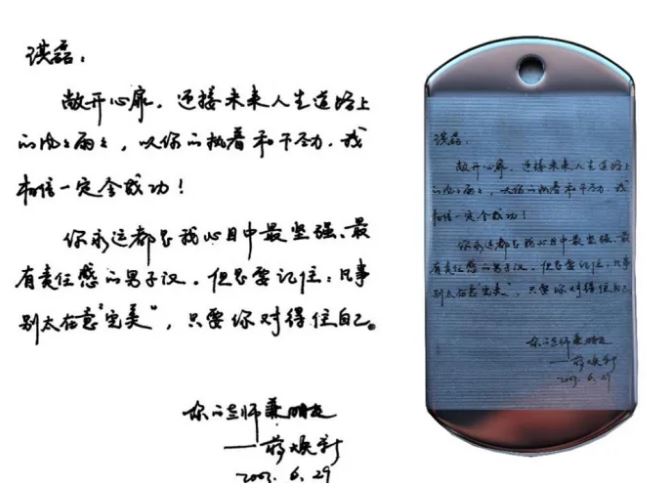 磊：
敞开心扉，迎接未来人生道路上
的风々雨々，以你的执着和干劲，我
相信一定会成功！
你永远都是我心目中最坚强、最
有责任感的男子汉。但是要记住：凡事
别太在意“完美”，只要你对得住自己。
你的老师兼朋友
——蒋焕新
2003.6.29
磊：
敞开心扉，迎接未来人生道路上
的风々雨々，以你的执着和干劲，我
相信一定会成功！
你永远都是我心目中最坚强、最
有责任感的男子汉。但是要记住：凡事
别太在意“完美”，只要你对得住自己。
你的老师兼朋友
——蒋焕新
2003.6.29